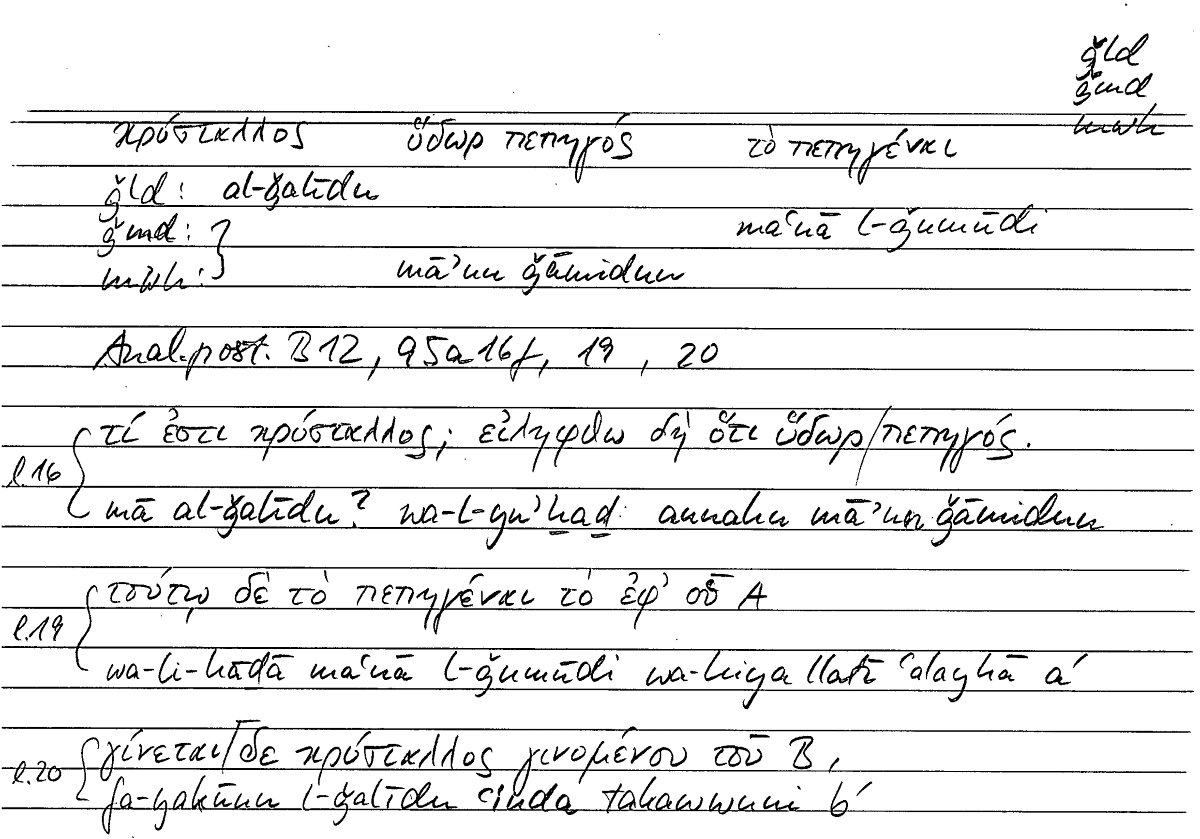 ǧld
ǧmd
mwh
κρύσταλλος ὕδωρ πεπηγός τὸ πεπηγέναι
ǧld: al-ǧalīdu
ǧmd: maʿnā l-ǧumūdi
mwh: māʾun ǧāmidun
Anal. post. B 12, 95a16f, 19, 20
τί ἐστι κρύσταλλος; εἰλήφθω δὴ ὅτι ὕδωρ/πεπηγός.
l.16
mā al-ǧalīdu? wa-l-yuʾḫaḏ: annahu māʾun ǧāmidun
τούτῳ δὲ τὸ πεπηγέναι τὸ ἐφ' οὗ A
l.19
wa-li-hāḏā maʿnā l-ǧumūdi wa-hiya llatī ʿalayhā a´
γίνεται/δὲ κρύσταλλος γινομένου τοῦ B,
l.20
fa-yakūnu l-ǧalīdu ʿinda takawwuni b´